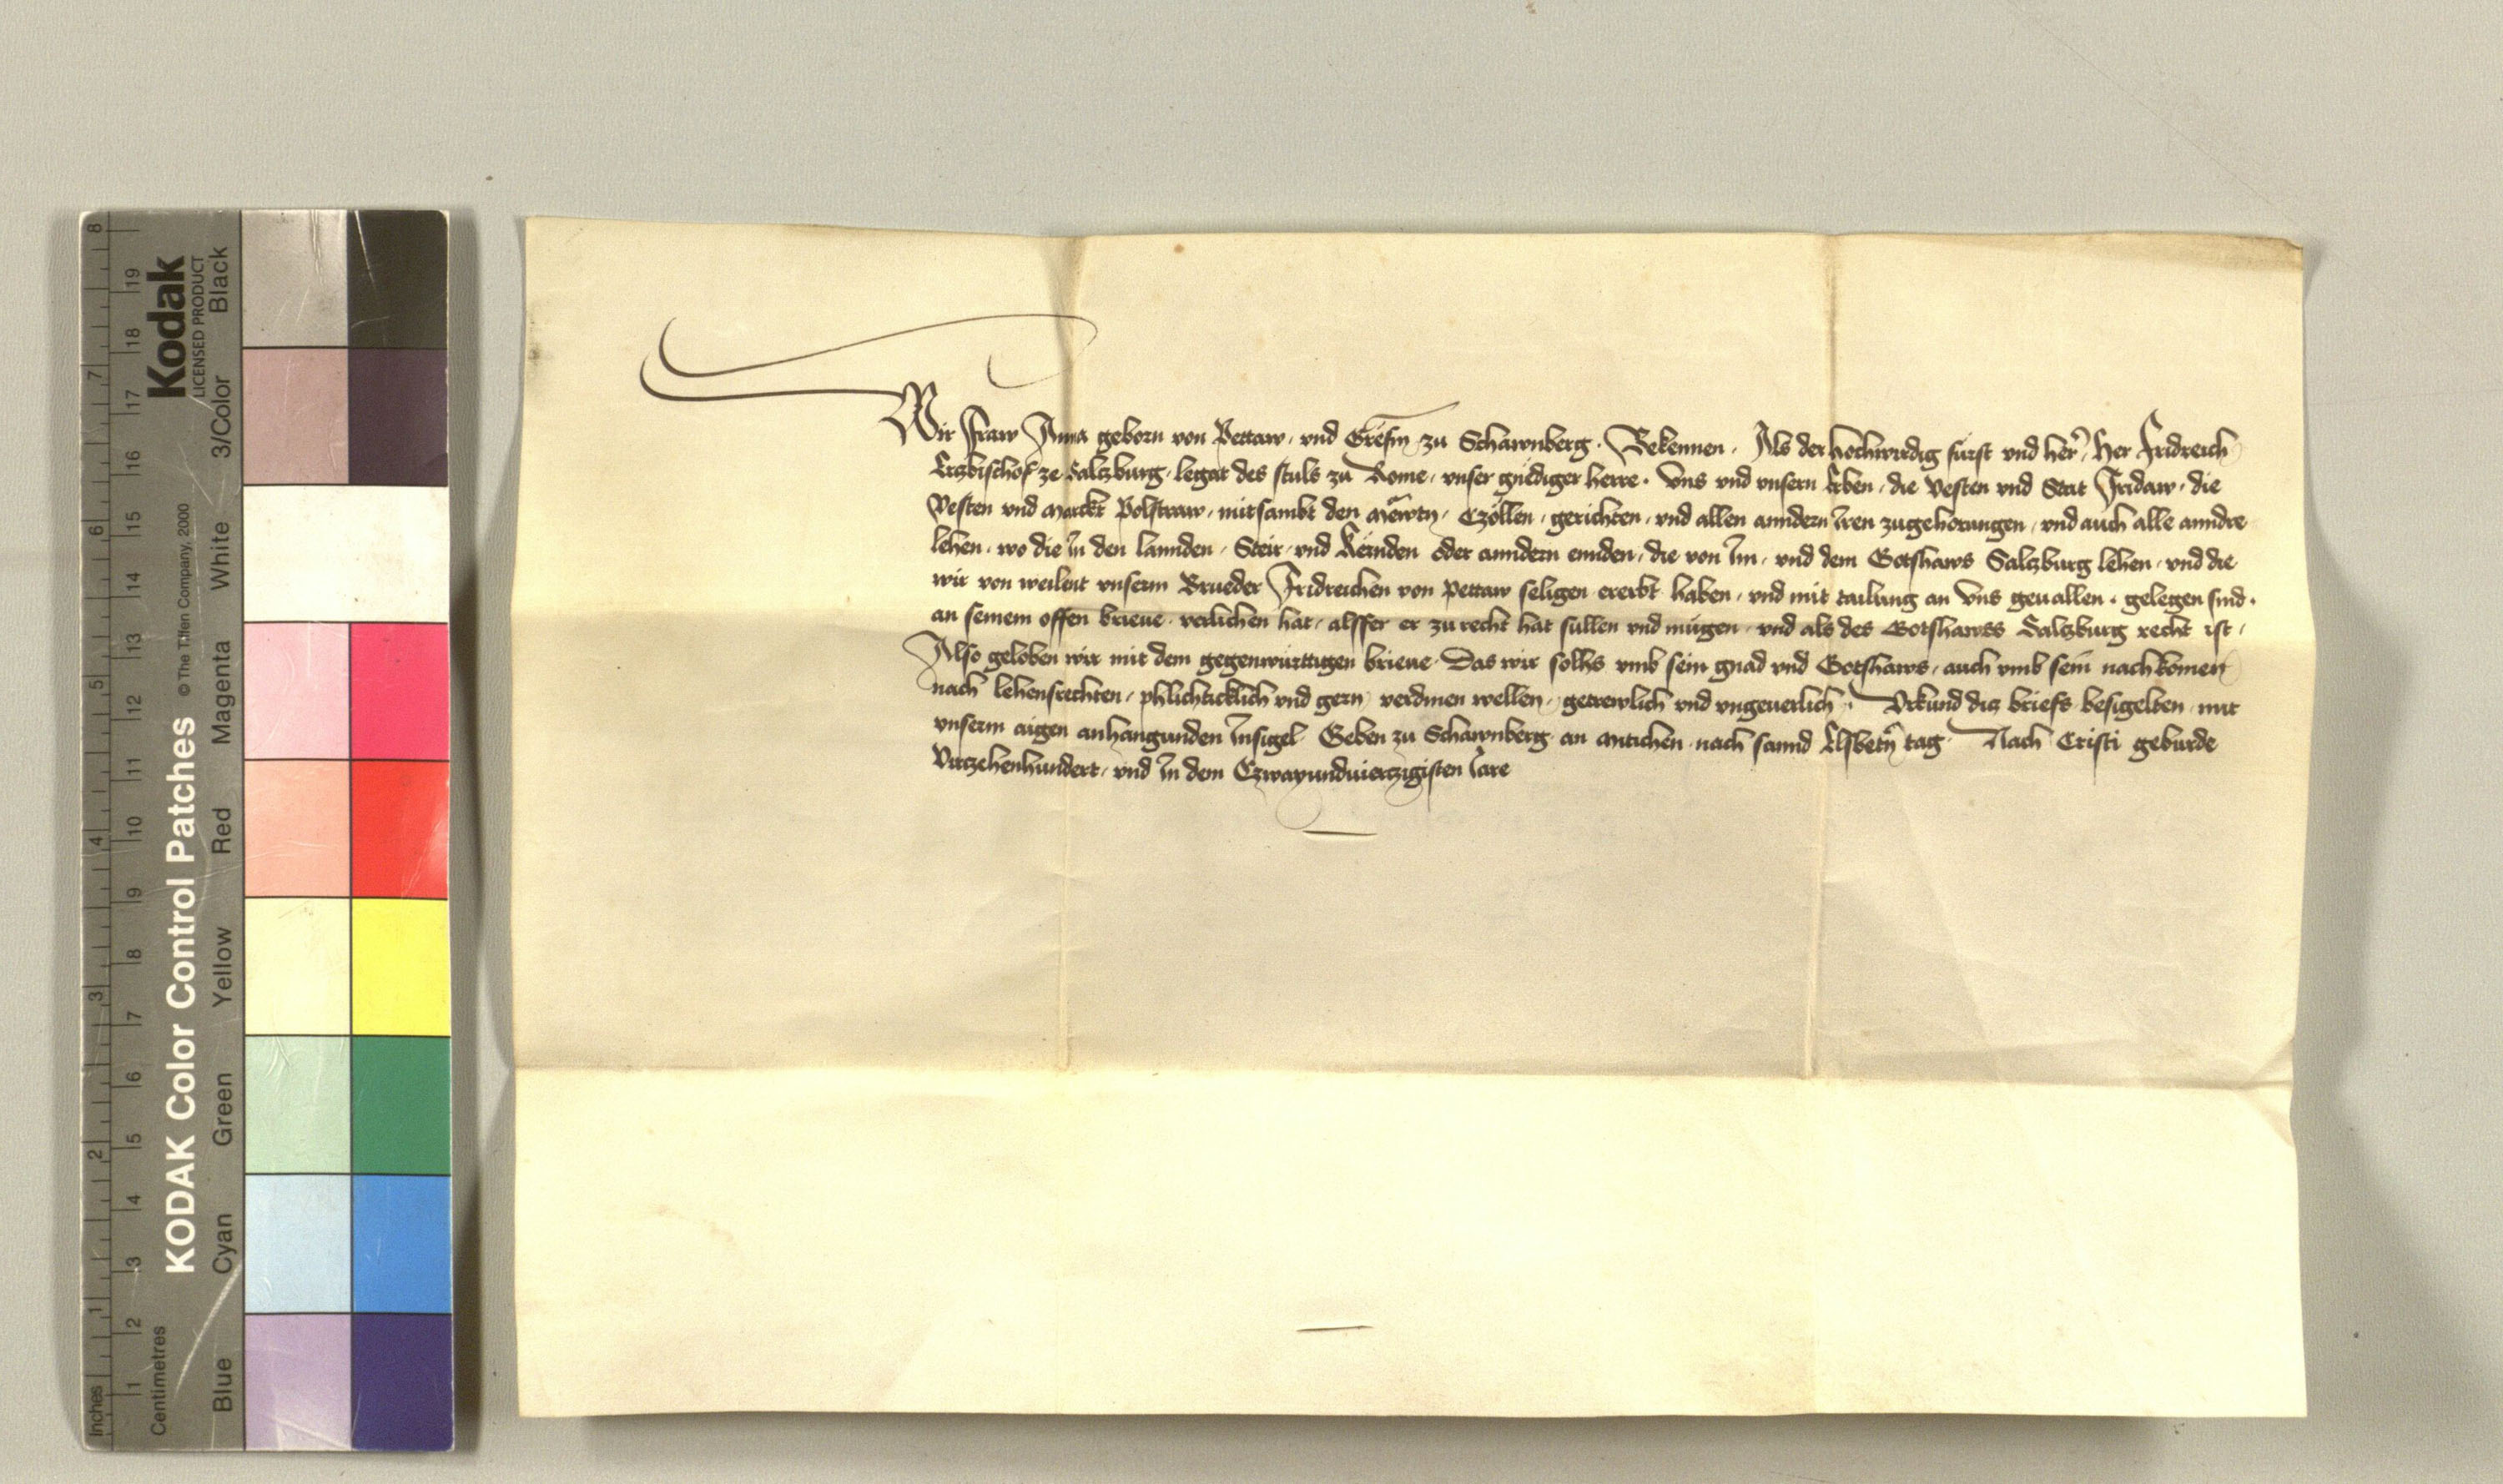 Wir fraw Anna geborn von Pettaw, vnd Gréfin zu Schawnberg. Bekennen. Als der hochwirdig fürst vnd her, Her Fridreich
Ertzbischof ze Salczburg, legat des stuls zu Rome, vnser gnédiger herre. Vns vnd vnsern Erben, die Vesten vnd Stat Fridaw, die
Vesten vnd marckt Polstraw, mitsambt den mewtn, Czöllen, gerichten, vnd allen anndern Iren zugehorungen, vnd auch alle anndre
lehen, wo die In den lannden, Steir, vnd Kérnden oder anndern ennden, die von Im, vnd dem Gotshaws Salczburg lehen, vnd die
wir von weilent vnserm Brueder Fridreichen von pettaw seligen ererbt haben, vnd mit tailung an Vns geuallen, gelegen sind.
an seinem offen brieue, verlichen hat, alsfer er zu recht hat sullen vnd mügen, vnd als des Gotshawss Salczburg recht ist,
Also geloben wir mit dem gegenwürttigen brieue. Das wir solhs vmb sein gnad vnd Gotshaws, auch vmb sein nachkomen
nach lehensrechten, phlichticklich vnd gern verdinen wellen, getrewlich vnd vngeuerlich. Vrkund diz briefs besigelten mit
vnserm aigen anhangunden Insigel. Geben zu Schawnberg an mntichen nach sannd Elsbetn tag. Nach Cristi geburde
Virczehenhundert, vnd In dem Czwayundvierczigisten Iare
KODAK Color Control Patches © The Tiffen Company, 2000
Kodak
LICENSED PRODUCT
Inches 1 2 3 4 5 6 7 8
Centimetres 1 2 3 4 5 6 7 8 9 10 11 12 13 14 15 16 17 18 19
Blue Cyan Green Yellow Red Magenta White 3/Color Black